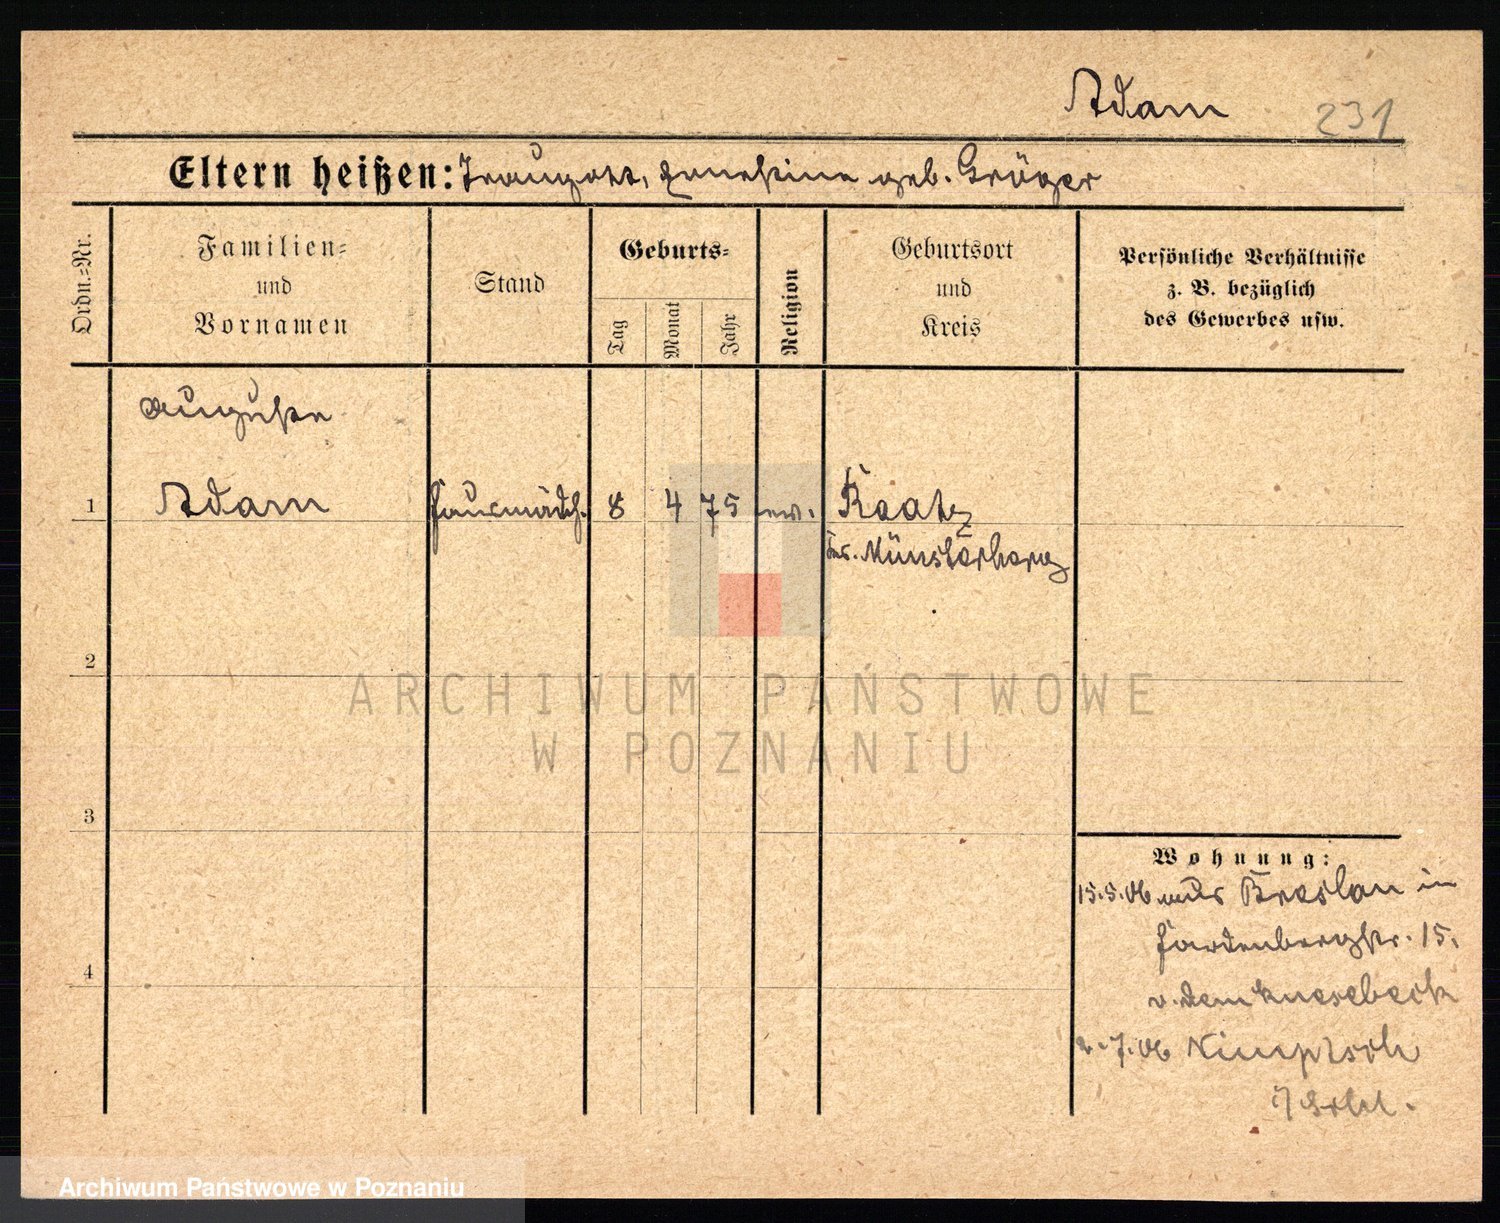 Adam
231
Eltern heißen: Traugott, Ernestine geb. Gröger
Ordn.=Nr.
Familien=
und
Vornamen
Stand
Geburts=
Tag
Monat
Jahr
Religion
Geburtsort
und
Kreis
Persönliche Verhältnisse
z. B. bezüglich
des Gewerbes usw.
Auguste
1 Adam Hausmädch. 8 4 75 ev. Raatz
Kr. Münsterberg
2
3
4
Wohnung:
15.5.06 aus Breslau in
Hardenbergstr. 15.
v. dem Knesebeck
2.7.06 Nimptsch
i/Schl.
ARCHIWUM PAŃSTWOWE
W POZNANIU
Archiwum Państwowe w Poznaniu